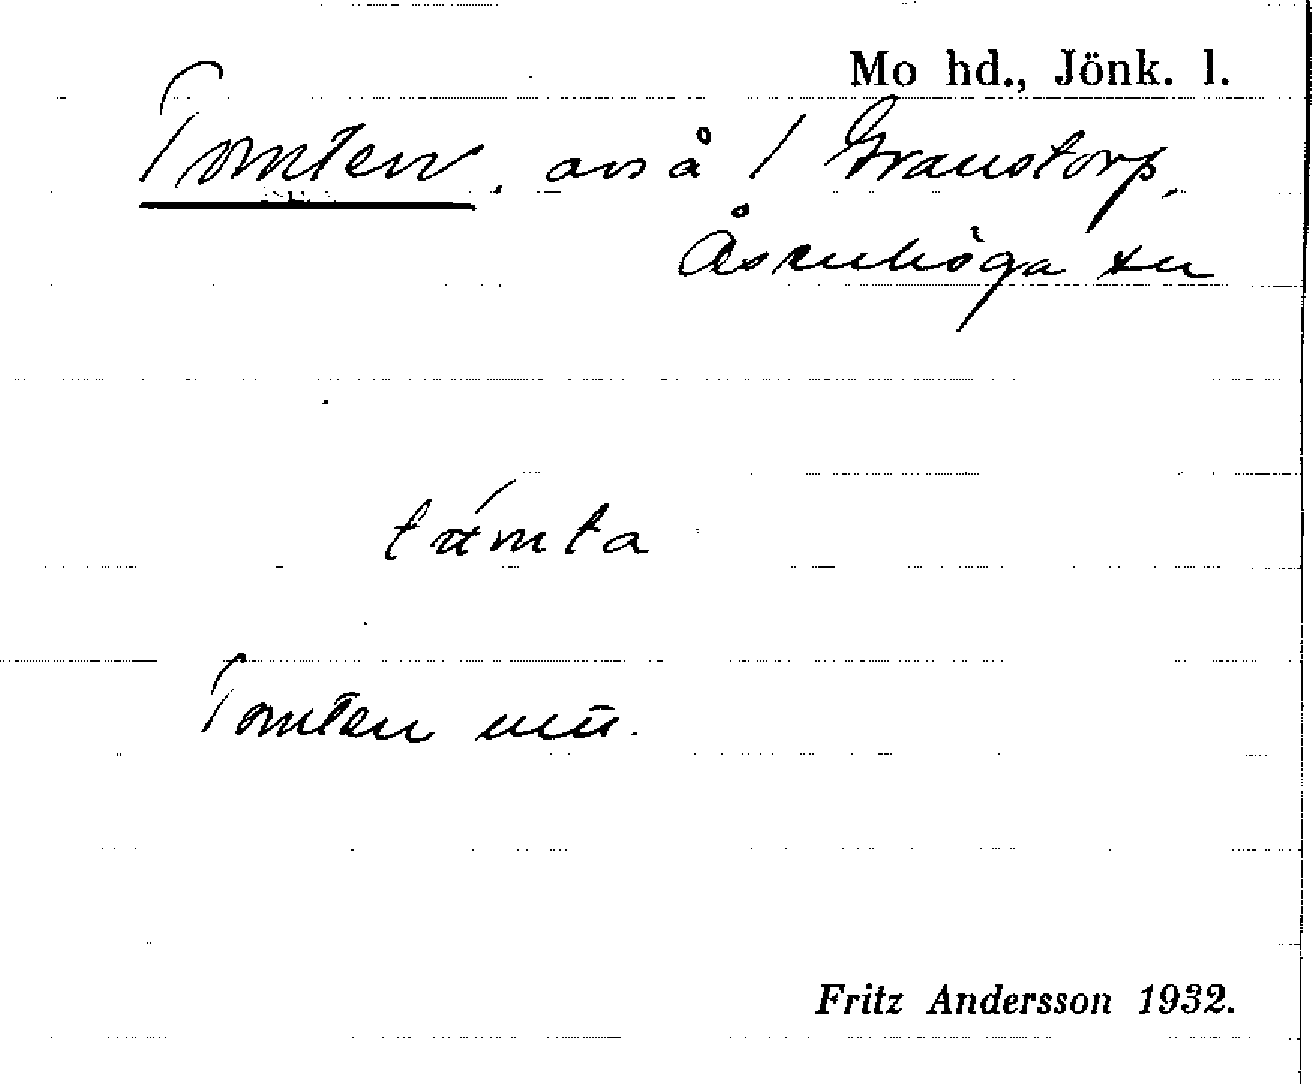 Mo hd., Jönk. l.
Tomten. avs å 1 Granstorp,
Åsenhöga sn
tómta
Tomten mtl.
Fritz Andersson 1932.